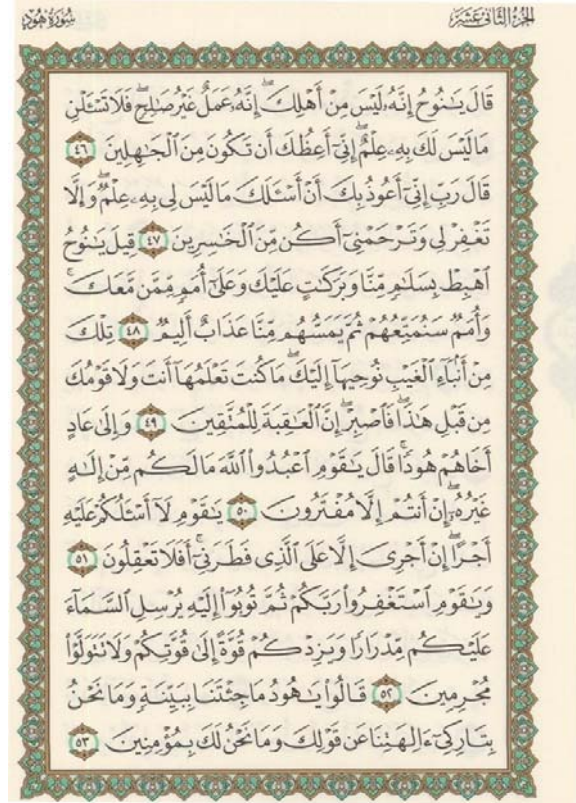 الجزء الثاني عشر
سورة هود
قَالَ يَـٰنُوحُ إِنَّهُۥ لَيْسَ مِنْ أَهْلِكَ ۖ إِنَّهُۥ عَمَلٌ غَيْرُ صَـٰلِحٍ ۖ فَلَا تَسْـَٔلْنِ
مَا لَيْسَ لَكَ بِهِۦ عِلْمٌ ۖ إِنِّىٓ أَعِظُكَ أَن تَكُونَ مِنَ ٱلْجَـٰهِلِينَ ٤٦
قَالَ رَبِّ إِنِّىٓ أَعُوذُ بِكَ أَنْ أَسْـَٔلَكَ مَا لَيْسَ لِى بِهِۦ عِلْمٌ ۖ وَإِلَّا
تَغْفِرْ لِى وَتَرْحَمْنِىٓ أَكُن مِّنَ ٱلْخَـٰسِرِينَ ٤٧ قِيلَ يَـٰنُوحُ
ٱهْبِطْ بِسَلَـٰمٍ مِّنَّا وَبَرَكَـٰتٍ عَلَيْكَ وَعَلَىٰٓ أُمَمٍ مِّمَّن مَّعَكَ ۚ
وَأُمَمٌ سَنُمَتِّعُهُمْ ثُمَّ يَمَسُّهُم مِّنَّا عَذَابٌ أَلِيمٌ ٤٨ تِلْكَ
مِنْ أَنۢبَآءِ ٱلْغَيْبِ نُوحِيهَآ إِلَيْكَ ۖ مَا كُنتَ تَعْلَمُهَآ أَنتَ وَلَا قَوْمُكَ
مِن قَبْلِ هَـٰذَا ۖ فَٱصْبِرْ ۖ إِنَّ ٱلْعَـٰقِبَةَ لِلْمُتَّقِينَ ٤٩ وَإِلَىٰ عَادٍ
أَخَاهُمْ هُودًا ۚ قَالَ يَـٰقَوْمِ ٱعْبُدُوا۟ ٱللَّهَ مَا لَكُم مِّنْ إِلَـٰهٍ
غَيْرُهُۥٓ ۖ إِنْ أَنتُمْ إِلَّا مُفْتَرُونَ ٥٠ يَـٰقَوْمِ لَآ أَسْـَٔلُكُمْ عَلَيْهِ
أَجْرًا ۖ إِنْ أَجْرِىَ إِلَّا عَلَى ٱلَّذِى فَطَرَنِىٓ ۚ أَفَلَا تَعْقِلُونَ ٥١
وَيَـٰقَوْمِ ٱسْتَغْفِرُوا۟ رَبَّكُمْ ثُمَّ تُوبُوٓا۟ إِلَيْهِ يُرْسِلِ ٱلسَّمَآءَ
عَلَيْكُم مِّدْرَارًا وَيَزِدْكُمْ قُوَّةً إِلَىٰ قُوَّتِكُمْ وَلَا تَتَوَلَّوْا۟
مُجْرِمِينَ ٥٢ قَالُوا۟ يَـٰهُودُ مَا جِئْتَنَا بِبَيِّنَةٍ وَمَا نَحْنُ
بِتَارِكِىٓ ءَالِهَتِنَا عَن قَوْلِكَ وَمَا نَحْنُ لَكَ بِمُؤْمِنِينَ ٥٣